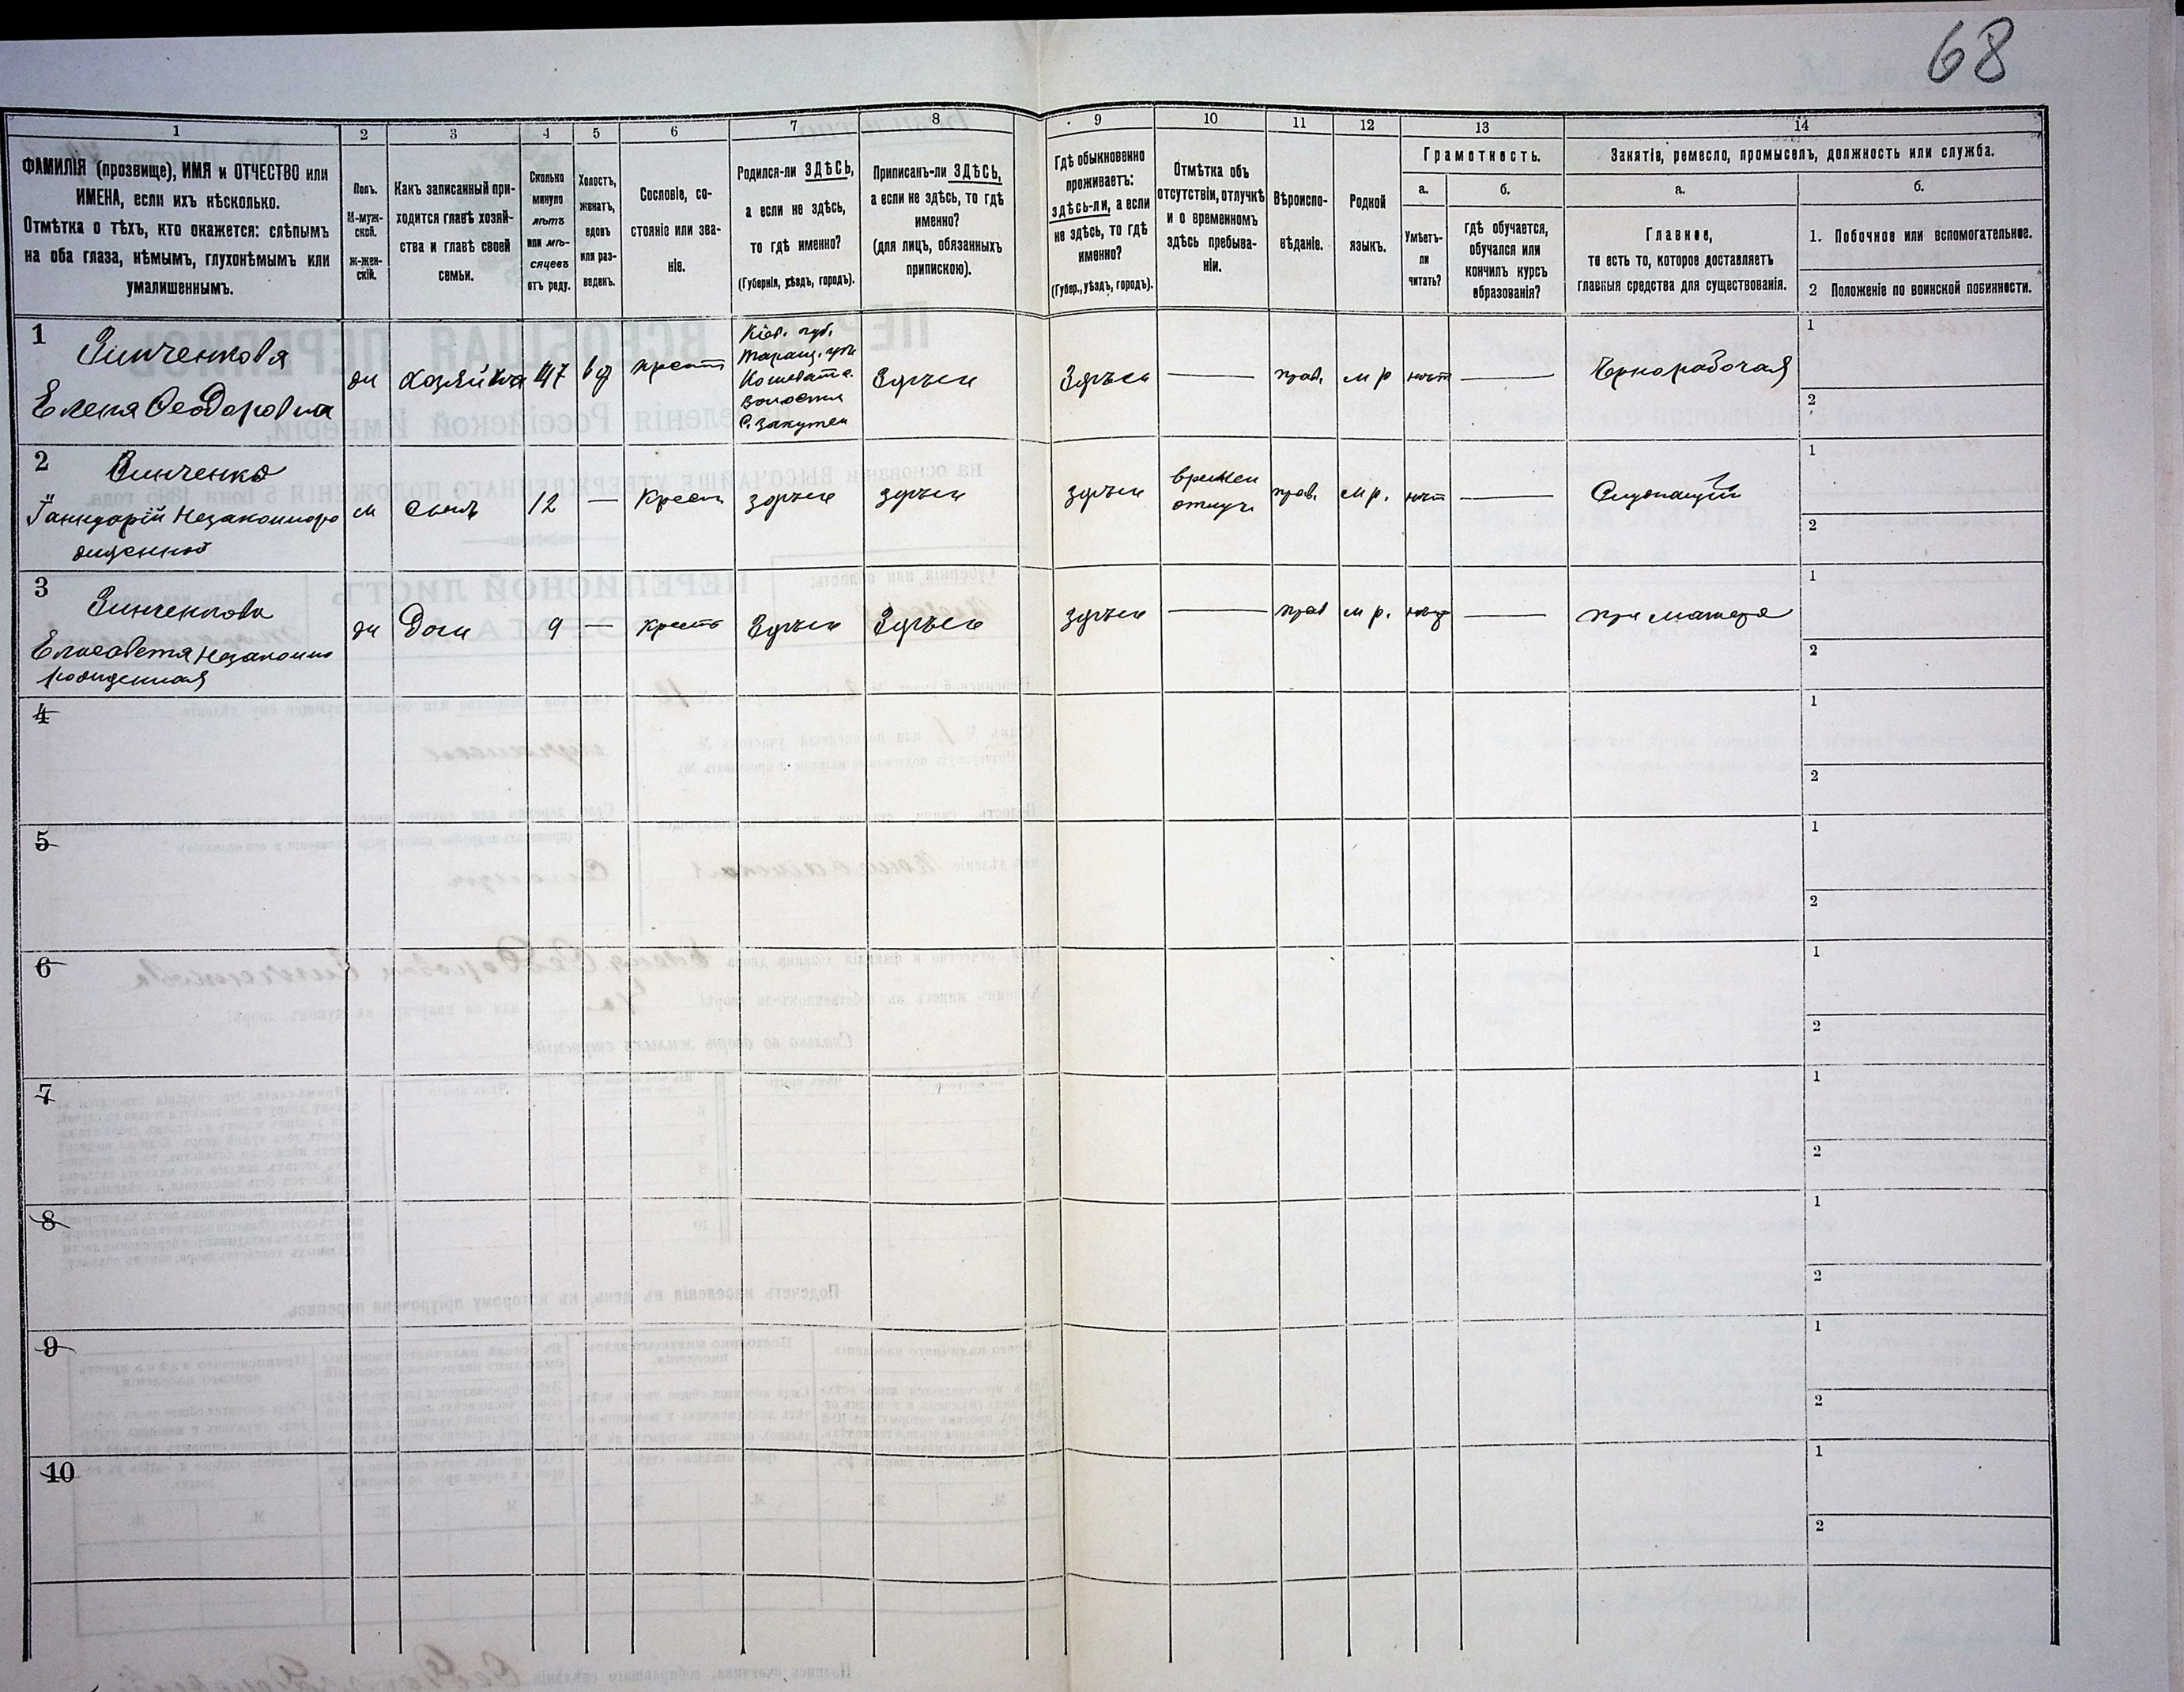 68
1 2 3 4 5 6 7 8 9 10 11 12 13 14
ФАМИЛІЯ (прозвище), ИМЯ и ОТЧЕСТВО или
ИМЕНА, если ихъ нѣсколько.
Отмѣтка о тѣхъ, кто окажется: слѣпымъ
на оба глаза, нѣмымъ, глухонѣмымъ или
умалишеннымъ.
Полъ.
М-муж-
ской.
Ж-жен-
скій.
Какъ записанный при-
ходится главѣ хозяй-
ства и главѣ своей
семьи.
Сколько
минуло
лѣтъ
или мѣ-
сяцевъ
отъ роду.
Холостъ,
женатъ,
вдовъ
или раз-
веденъ.
Сословіе, со-
стояніе или зва-
ніе.
Родился-ли ЗДѢСЬ,
а если не здѣсь,
то гдѣ именно?
(Губернія, уѣздъ, городъ).
Приписанъ-ли ЗДѢСЬ,
а если не здѣсь, то гдѣ
именно?
(для лицъ, обязанныхъ
припискою).
Гдѣ обыкновенно
проживаетъ:
здѣсь-ли, а если
не здѣсь, то гдѣ
именно?
(Губер., уѣздъ, городъ).
Отмѣтка объ
отсутствіи, отлучкѣ
и о временномъ
здѣсь пребыва-
ніи.
Вѣроиспо-
вѣданіе.
Родной
языкъ.
Грамотность.
а.
Умѣетъ-
ли
читать?
б.
гдѣ обучается,
обучался или
кончилъ курсъ
образованія?
Занятіе, ремесло, промыселъ, должность или служба.
а.
Главное,
то есть то, которое доставляетъ
главныя средства для существованія.
б.
1. Побочное или вспомогательное.
2 Положеніе по воинской повинности.
1
Зинченкова
Елена Феодоровна
ж
хозяйка
47
вд
крест
Кіев. губ.
Таращ. уѣз
Кошеватс.
Волости
С. Закутен
Здѣсь
Здѣсь
—
прав.
м р
нѣт
—
Чернорабочая
1
2
2
Зинченко
Незаконноро
жденной
м
сынъ
12
—
Крест
здѣсь
здѣсь
здѣсь
времен
отлуч
прав.
м р.
нѣт
—
Служащій
1
2
3
Зинченкова
Елисавета Незаконно
рожденная
ж
Дочь
9
—
крест
Здѣсь
Здѣсь
здѣсь
—
прав
м р.
нѣт
—
при матери
1
2
4
1
2
5
1
2
6
1
2
7
1
2
8
1
2
9
1
2
10
1
2